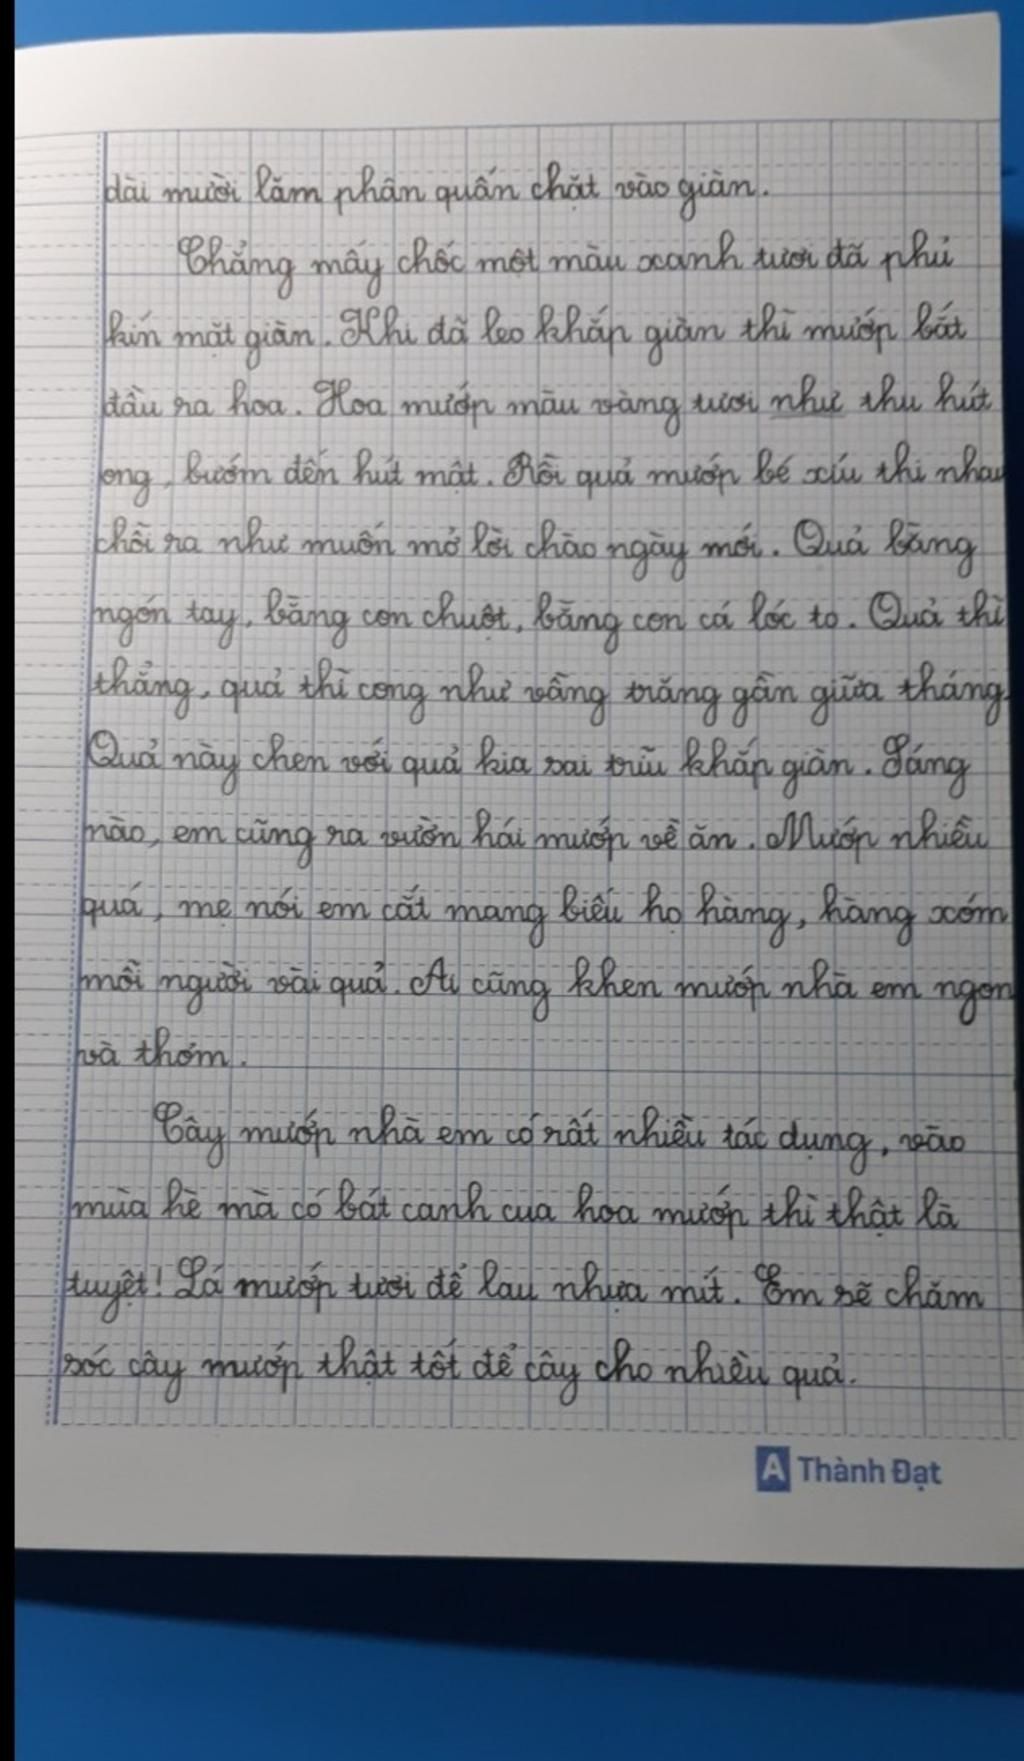 dài mười lăm phân quấn chặt vào giàn.
Chẳng mấy chốc một màu xanh tươi đã phủ
kín mặt giàn. Khi đã leo khắp giàn thì mướp bắt
đầu ra hoa. Hoa mướp màu vàng tươi như thu hút
ong, bướm đến hút mật. Rồi quả mướp bé xíu thi nhau
chồi ra như muốn mở lời chào ngày mới. Quả bằng
ngón tay, bằng con chuột, bằng con cá lóc to. Quả thì
thẳng, quả thì cong như vầng trăng gần giữa tháng.
Quả này chen với quả kia sai trĩu khắp giàn. Sáng
nào, em cũng ra vườn hái mướp về ăn. Mướp nhiều
quá, mẹ nói em cắt mang biếu họ hàng, hàng xóm
mỗi người vài quả. Ai cũng khen mướp nhà em ngon
và thơm.
Cây mướp nhà em có rất nhiều tác dụng, vào
mùa hè mà có bát canh cua hoa mướp thì thật là
tuyệt! Lá mướp tươi để lau nhựa mít. Em sẽ chăm
sóc cây mướp thật tốt để cây cho nhiều quả.
A Thành Đạt